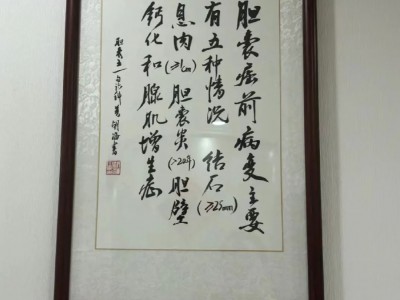 胆囊癌前病变主要
有五种情况 结石(≥25mm)
息肉(≥1cm)胆囊炎(>20年)胆壁
钙化和腺肌增生症